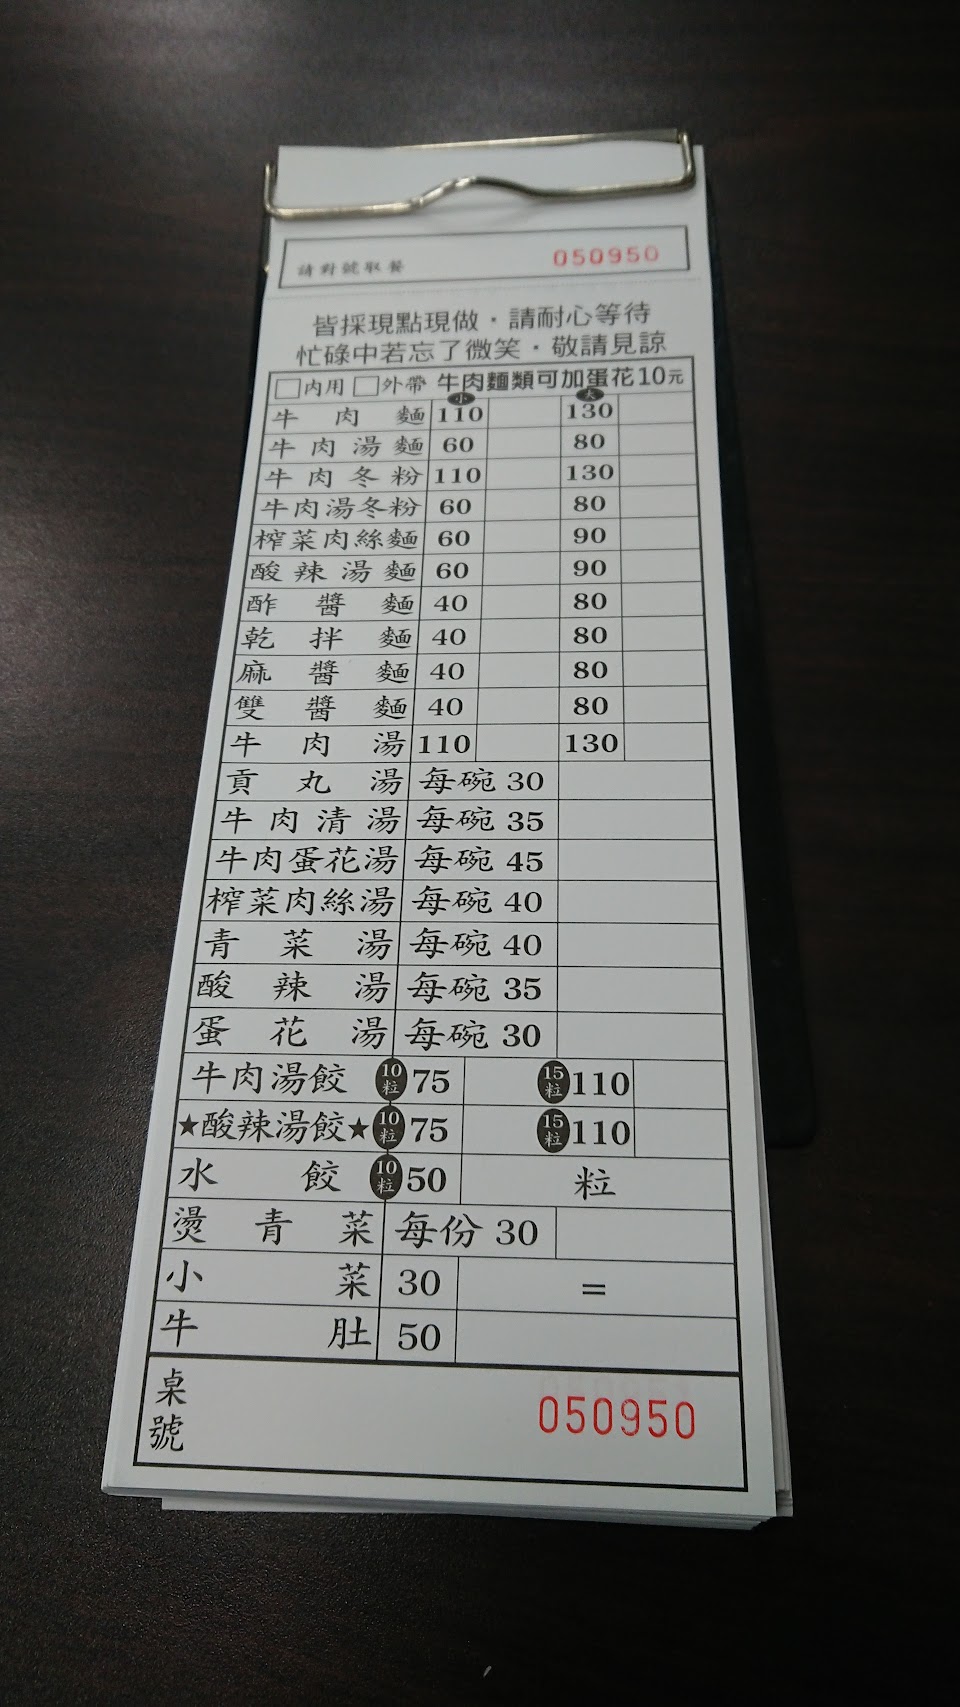 請對號取餐 050950
皆採現點現做，請耐心等待
忙碌中若忘了微笑，敬請見諒
內用 外帶 牛肉麵類可加蛋花10元
小 大
牛肉麵 110 130
牛肉湯麵 60 80
牛肉冬粉 110 130
牛肉湯冬粉 60 80
榨菜肉絲麵 60 90
酸辣湯麵 60 90
酢醬麵 40 80
乾拌麵 40 80
麻醬麵 40 80
雙醬麵 40 80
牛肉湯 110 130
貢丸湯 每碗 30
牛肉清湯 每碗 35
牛肉蛋花湯 每碗 45
榨菜肉絲湯 每碗 40
青菜湯 每碗 40
酸辣湯 每碗 35
蛋花湯 每碗 30
牛肉湯餃 10粒 75 15粒 110
★酸辣湯餃★ 10粒 75 15粒 110
水餃 10粒 50 粒
燙青菜 每份 30
小菜 30 =
牛肚 50
桌號 050950